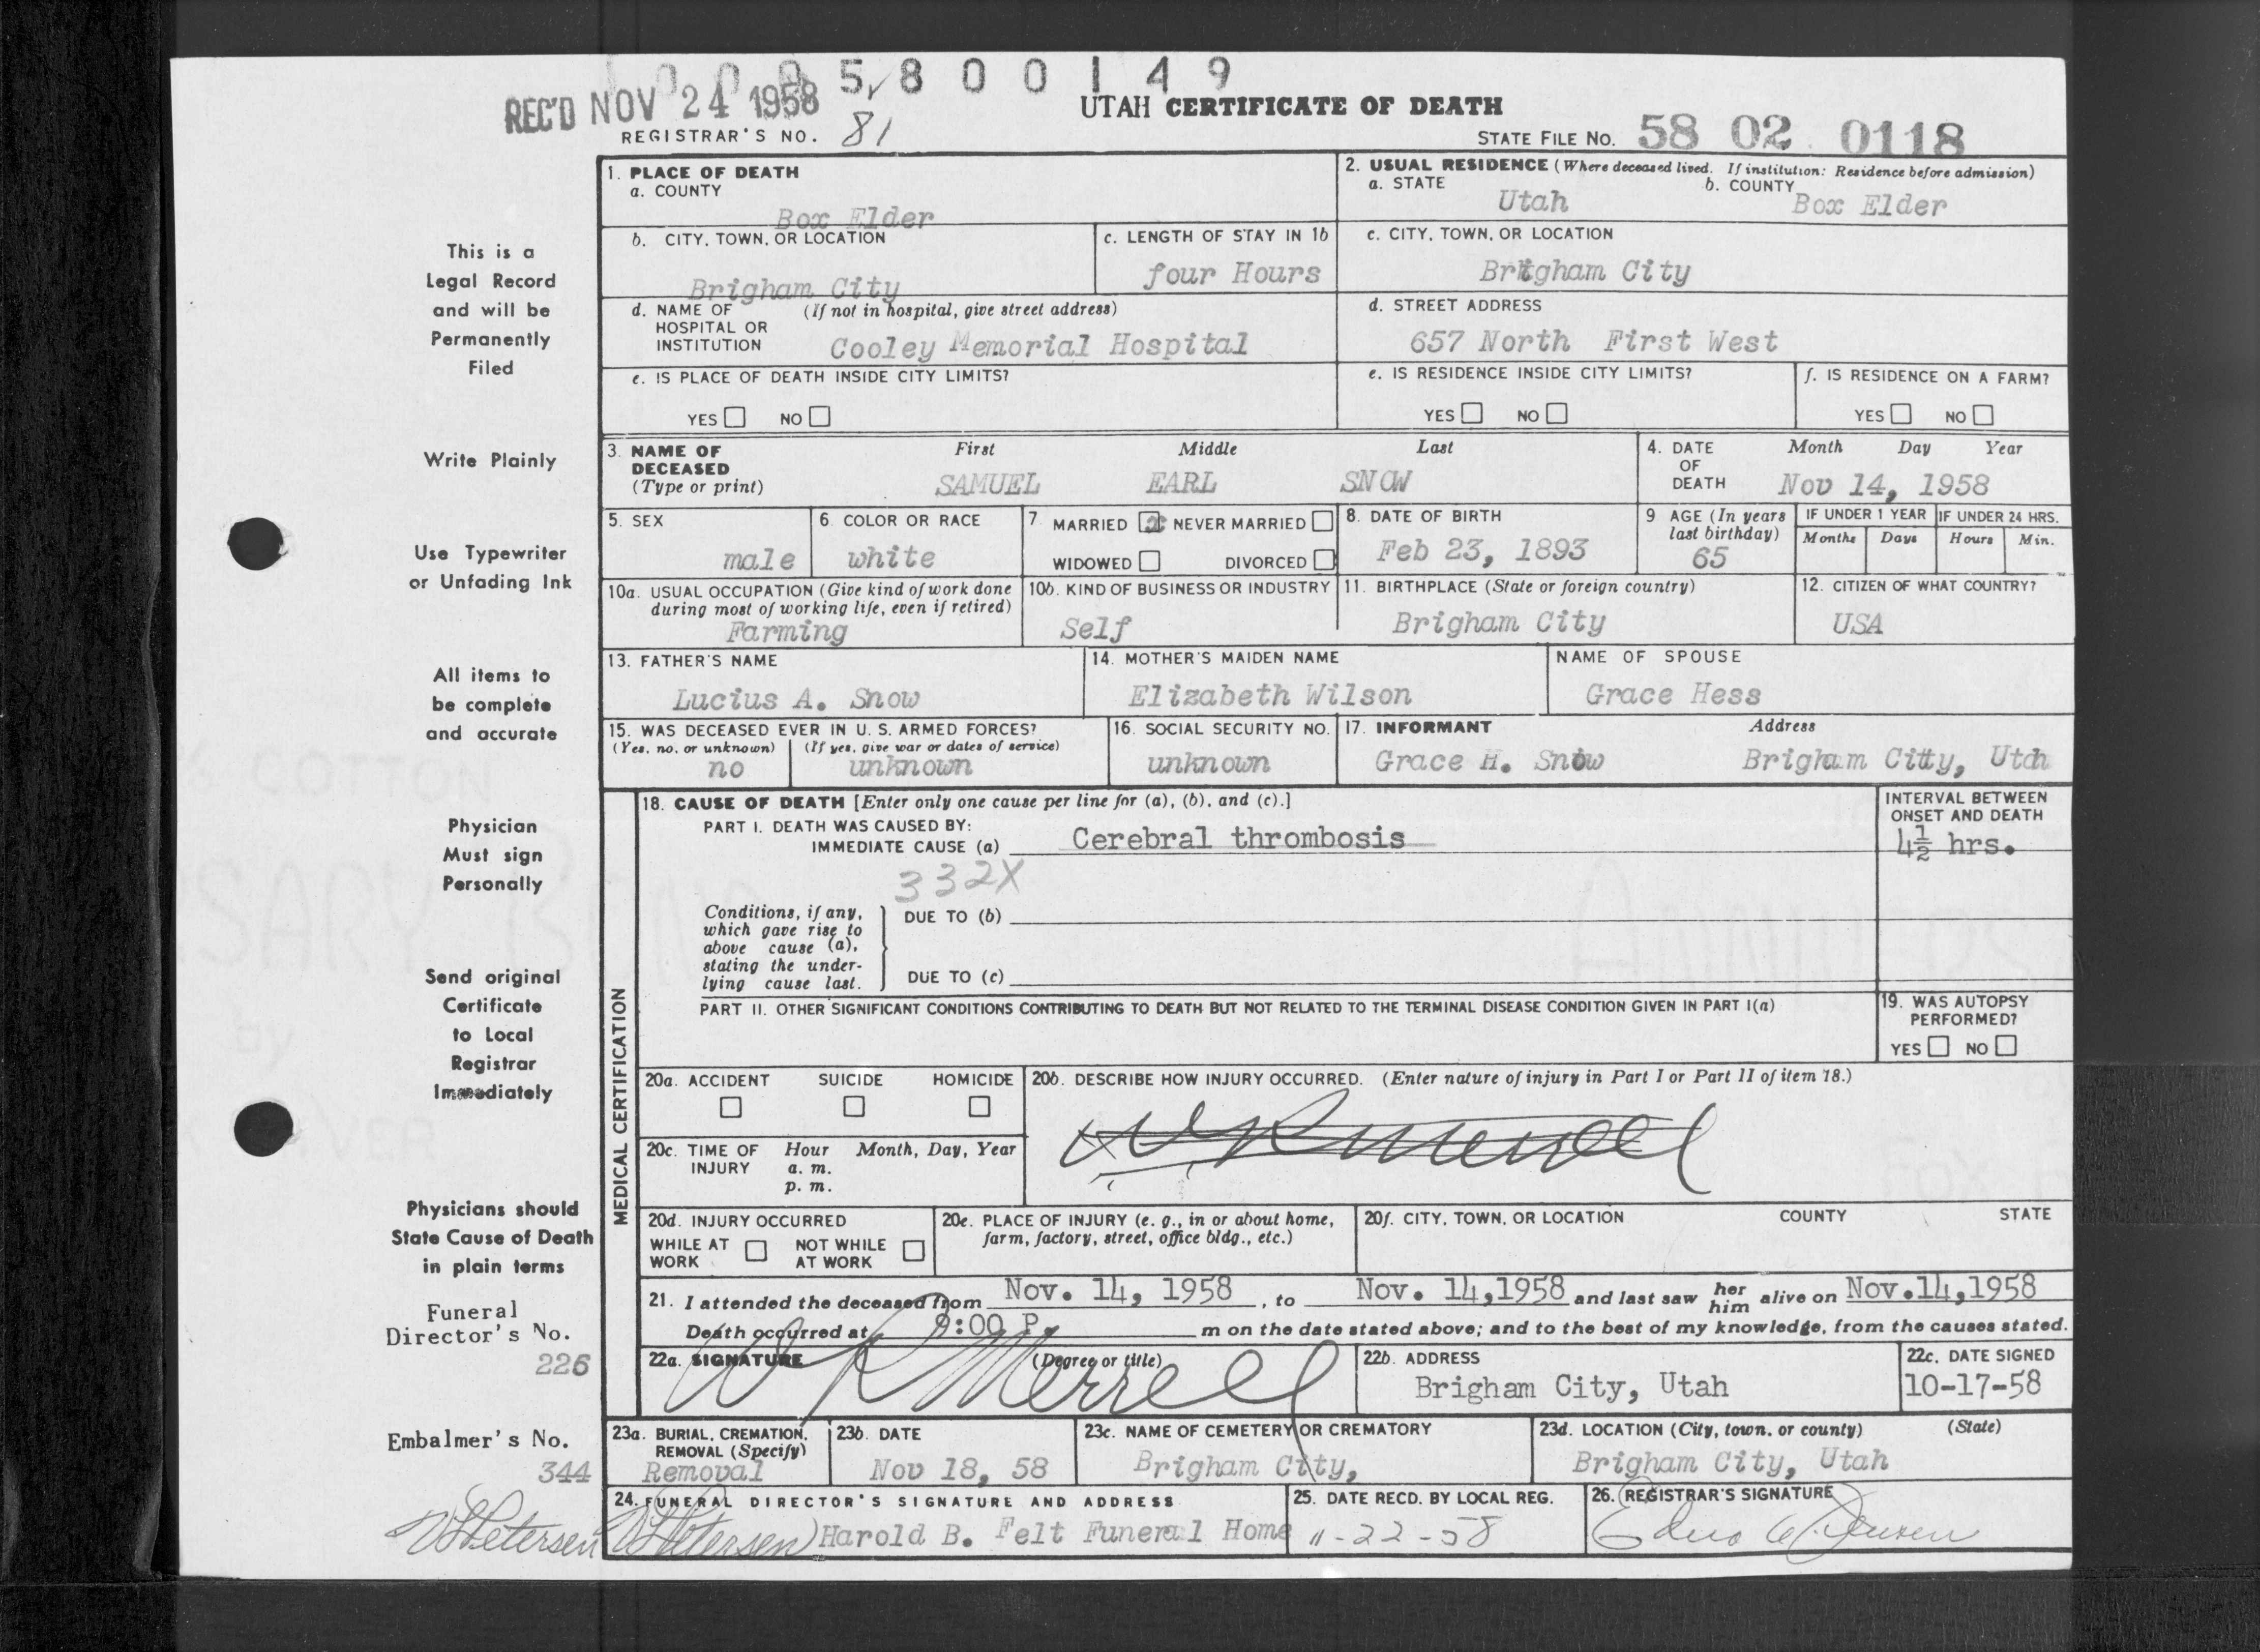 1 0 0 0 5 8 0 0 1 4 9
REC'D NOV 24 1958
UTAH CERTIFICATE OF DEATH
REGISTRAR'S NO. 81
STATE FILE NO. 58 02 0118
1. PLACE OF DEATH
a. COUNTY
Box Elder
2. USUAL RESIDENCE (Where deceased lived. If institution: Residence before admission)
a. STATE b. COUNTY
Utah Box Elder
b. CITY, TOWN, OR LOCATION
Brigham City
c. LENGTH OF STAY IN 1b
four Hours
c. CITY, TOWN, OR LOCATION
Brigham City
d. NAME OF (If not in hospital, give street address)
HOSPITAL OR
INSTITUTION Cooley Memorial Hospital
d. STREET ADDRESS
657 North First West
e. IS PLACE OF DEATH INSIDE CITY LIMITS?
YES NO
e. IS RESIDENCE INSIDE CITY LIMITS?
YES NO
f. IS RESIDENCE ON A FARM?
YES NO
3. NAME OF First Middle Last
DECEASED
(Type or print) SAMUEL EARL SNOW
4. DATE Month Day Year
OF
DEATH Nov 14, 1958
5. SEX
male
6. COLOR OR RACE
white
7. MARRIED x NEVER MARRIED
WIDOWED DIVORCED
8. DATE OF BIRTH
Feb 23, 1893
9 AGE (In years
last birthday)
65
IF UNDER 1 YEAR
Months Days
IF UNDER 24 HRS.
Hours Min.
10a. USUAL OCCUPATION (Give kind of work done
during most of working life, even if retired)
Farming
10b. KIND OF BUSINESS OR INDUSTRY
Self
11. BIRTHPLACE (State or foreign country)
Brigham City
12. CITIZEN OF WHAT COUNTRY?
USA
13. FATHER'S NAME
Lucius A. Snow
14. MOTHER'S MAIDEN NAME
Elizabeth Wilson
NAME OF SPOUSE
Grace Hess
15. WAS DECEASED EVER IN U. S. ARMED FORCES?
(Yes, no, or unknown) (If yes, give war or dates of service)
no unknown
16. SOCIAL SECURITY NO.
unknown
17. INFORMANT Address
Grace H. Snow Brigham City, Utah
MEDICAL CERTIFICATION
18. CAUSE OF DEATH [Enter only one cause per line for (a), (b), and (c).]
PART I. DEATH WAS CAUSED BY:
IMMEDIATE CAUSE (a) Cerebral thrombosis
332X
INTERVAL BETWEEN
ONSET AND DEATH
4½ hrs.
Conditions, if any,
which gave rise to
above cause (a),
stating the under-
lying cause last.
DUE TO (b)
DUE TO (c)
PART II. OTHER SIGNIFICANT CONDITIONS CONTRIBUTING TO DEATH BUT NOT RELATED TO THE TERMINAL DISEASE CONDITION GIVEN IN PART I(a)
19. WAS AUTOPSY
PERFORMED?
YES NO
20a. ACCIDENT SUICIDE HOMICIDE
20b. DESCRIBE HOW INJURY OCCURRED. (Enter nature of injury in Part I or Part II of item 18.)
W R Merrell
20c. TIME OF Hour Month, Day, Year
INJURY a. m.
p. m.
20d. INJURY OCCURRED
WHILE AT NOT WHILE
WORK AT WORK
20e. PLACE OF INJURY (e. g., in or about home,
farm, factory, street, office bldg., etc.)
20f. CITY, TOWN, OR LOCATION COUNTY STATE
21. I attended the deceased from Nov. 14, 1958, to Nov. 14,1958 and last saw her him alive on Nov.14,1958
Death occurred at 9:00 P. m on the date stated above; and to the best of my knowledge, from the causes stated.
22a. SIGNATURE (Degree or title)
W R Merrell
22b. ADDRESS
Brigham City, Utah
22c. DATE SIGNED
10-17-58
23a. BURIAL, CREMATION,
REMOVAL (Specify)
Removal
23b. DATE
Nov 18, 58
23c. NAME OF CEMETERY OR CREMATORY
Brigham City,
23d. LOCATION (City, town, or county) (State)
Brigham City, Utah
24. FUNERAL DIRECTOR'S SIGNATURE AND ADDRESS
Petersen Harold B. Felt Funeral Home
25. DATE RECD. BY LOCAL REG.
11-22-58
26. REGISTRAR'S SIGNATURE
This is a
Legal Record
and will be
Permanently
Filed
Write Plainly
Use Typewriter
or Unfading Ink
All items to
be complete
and accurate
Physician
Must sign
Personally
Send original
Certificate
to Local
Registrar
Immediately
Physicians should
State Cause of Death
in plain terms
Funeral
Director's No.
226
Embalmer's No.
344
Petersen